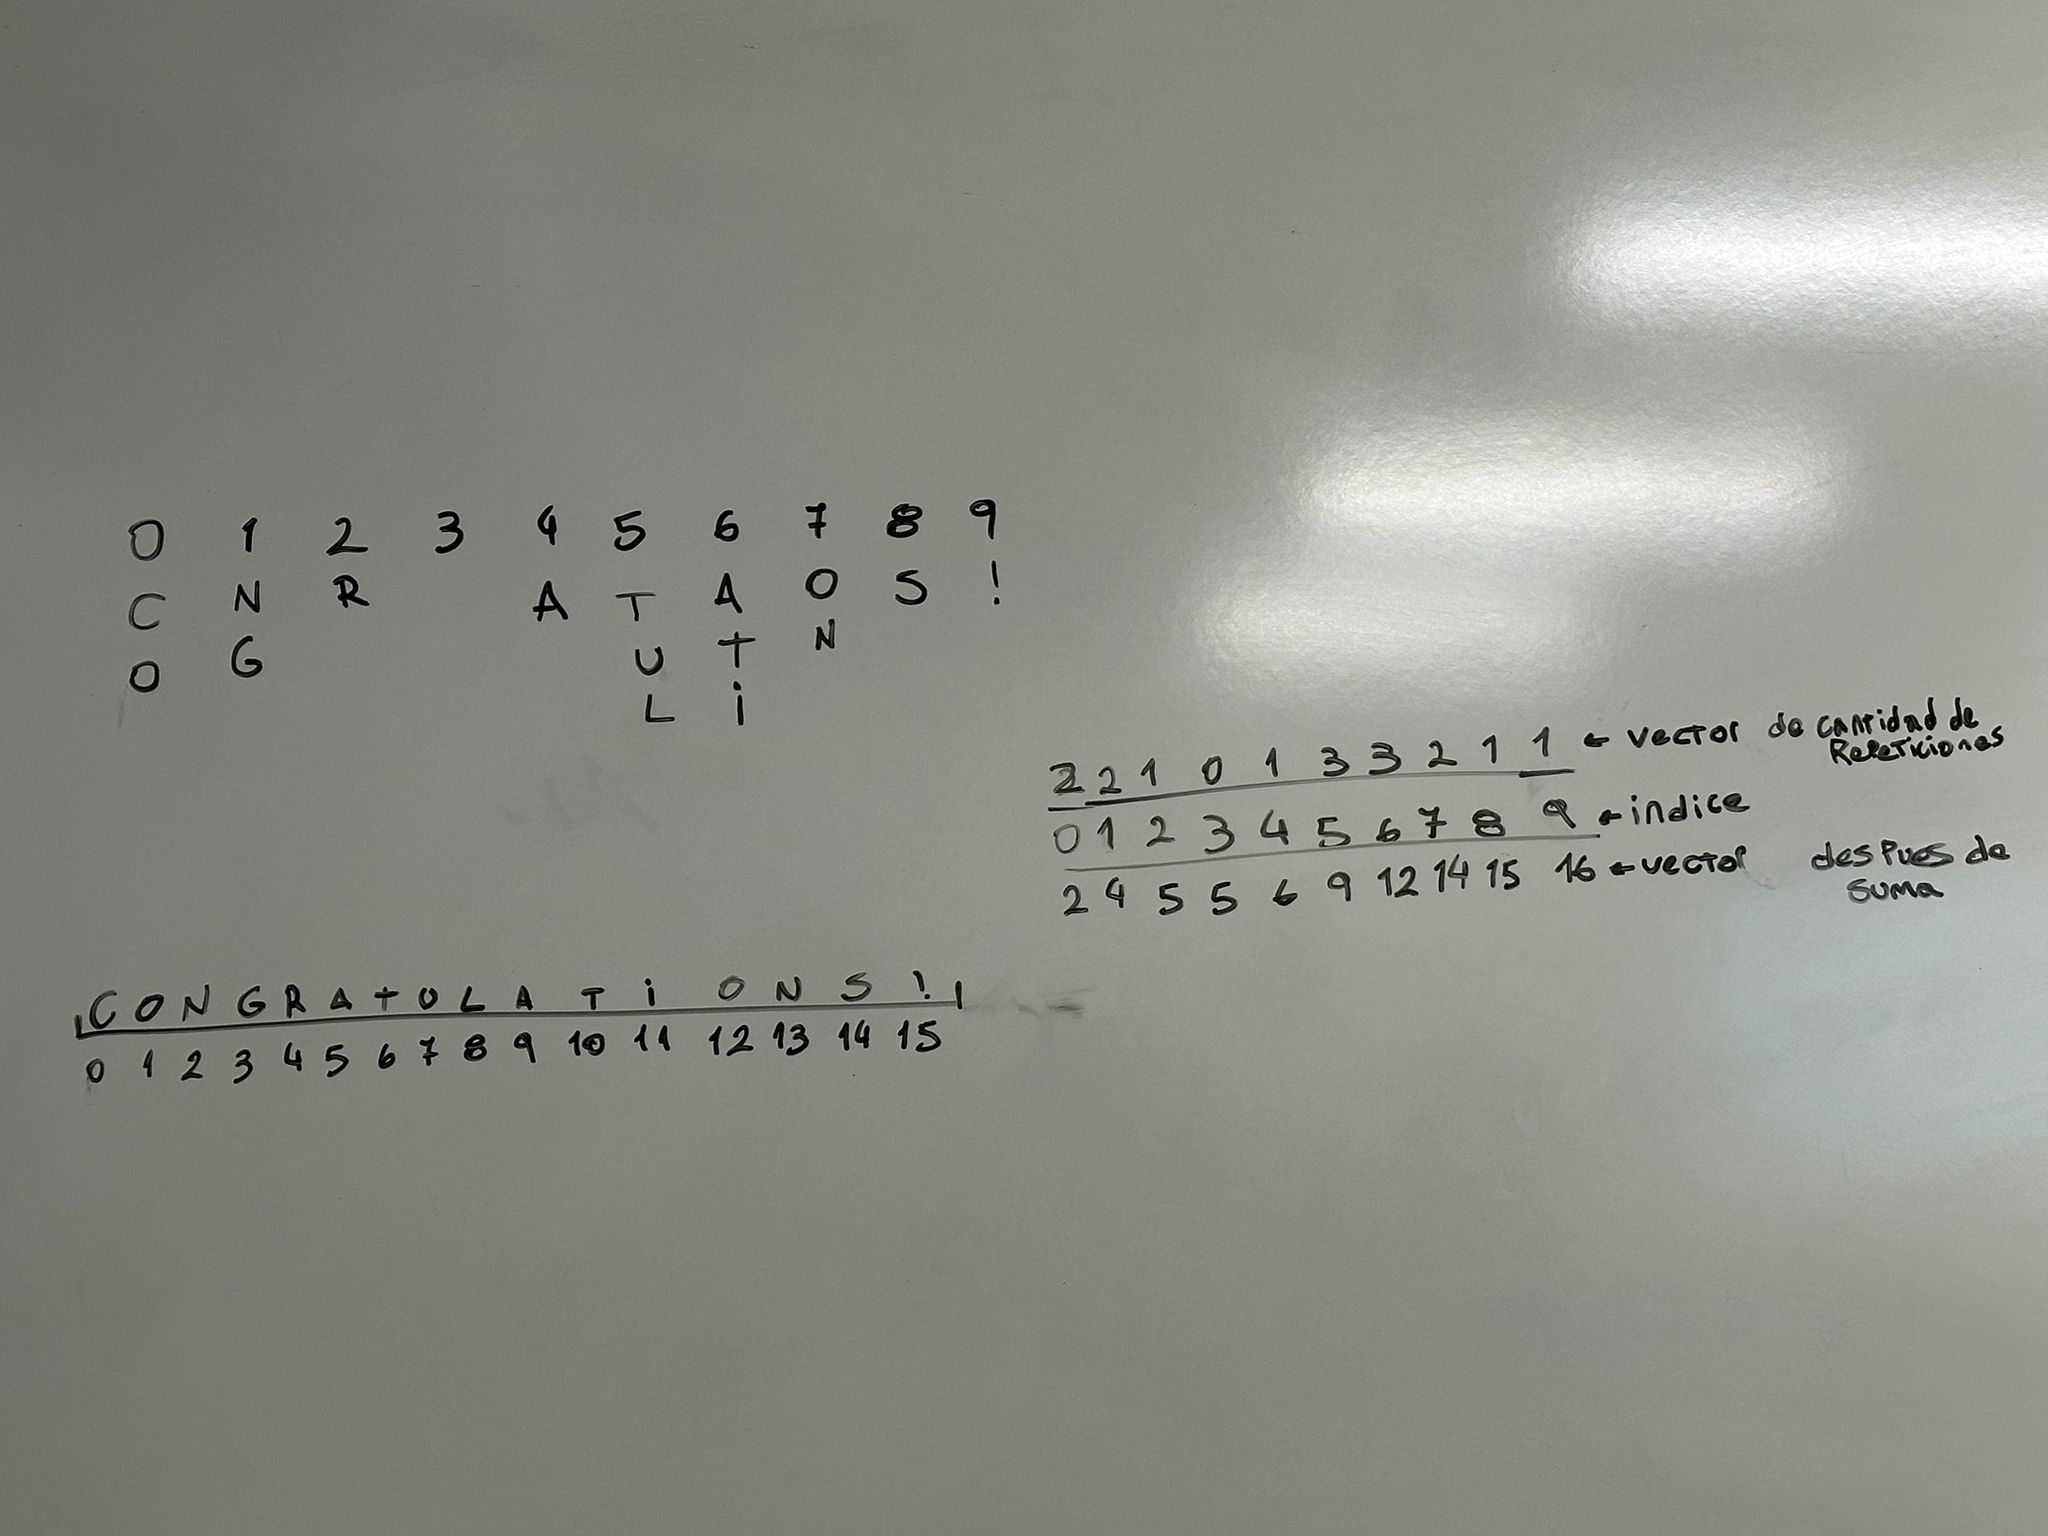 0 1 2 3 4 5 6 7 8 9
C N R A T A O S !
O G U T N
L i
2 2 1 0 1 3 3 2 1 1 ← vector de cantidad de
Repeticiones
0 1 2 3 4 5 6 7 8 9 ← indice
2 4 5 5 6 9 12 14 15 16 ← vector despues de
suma
C O N G R A T U L A T i O N S !
0 1 2 3 4 5 6 7 8 9 10 11 12 13 14 15